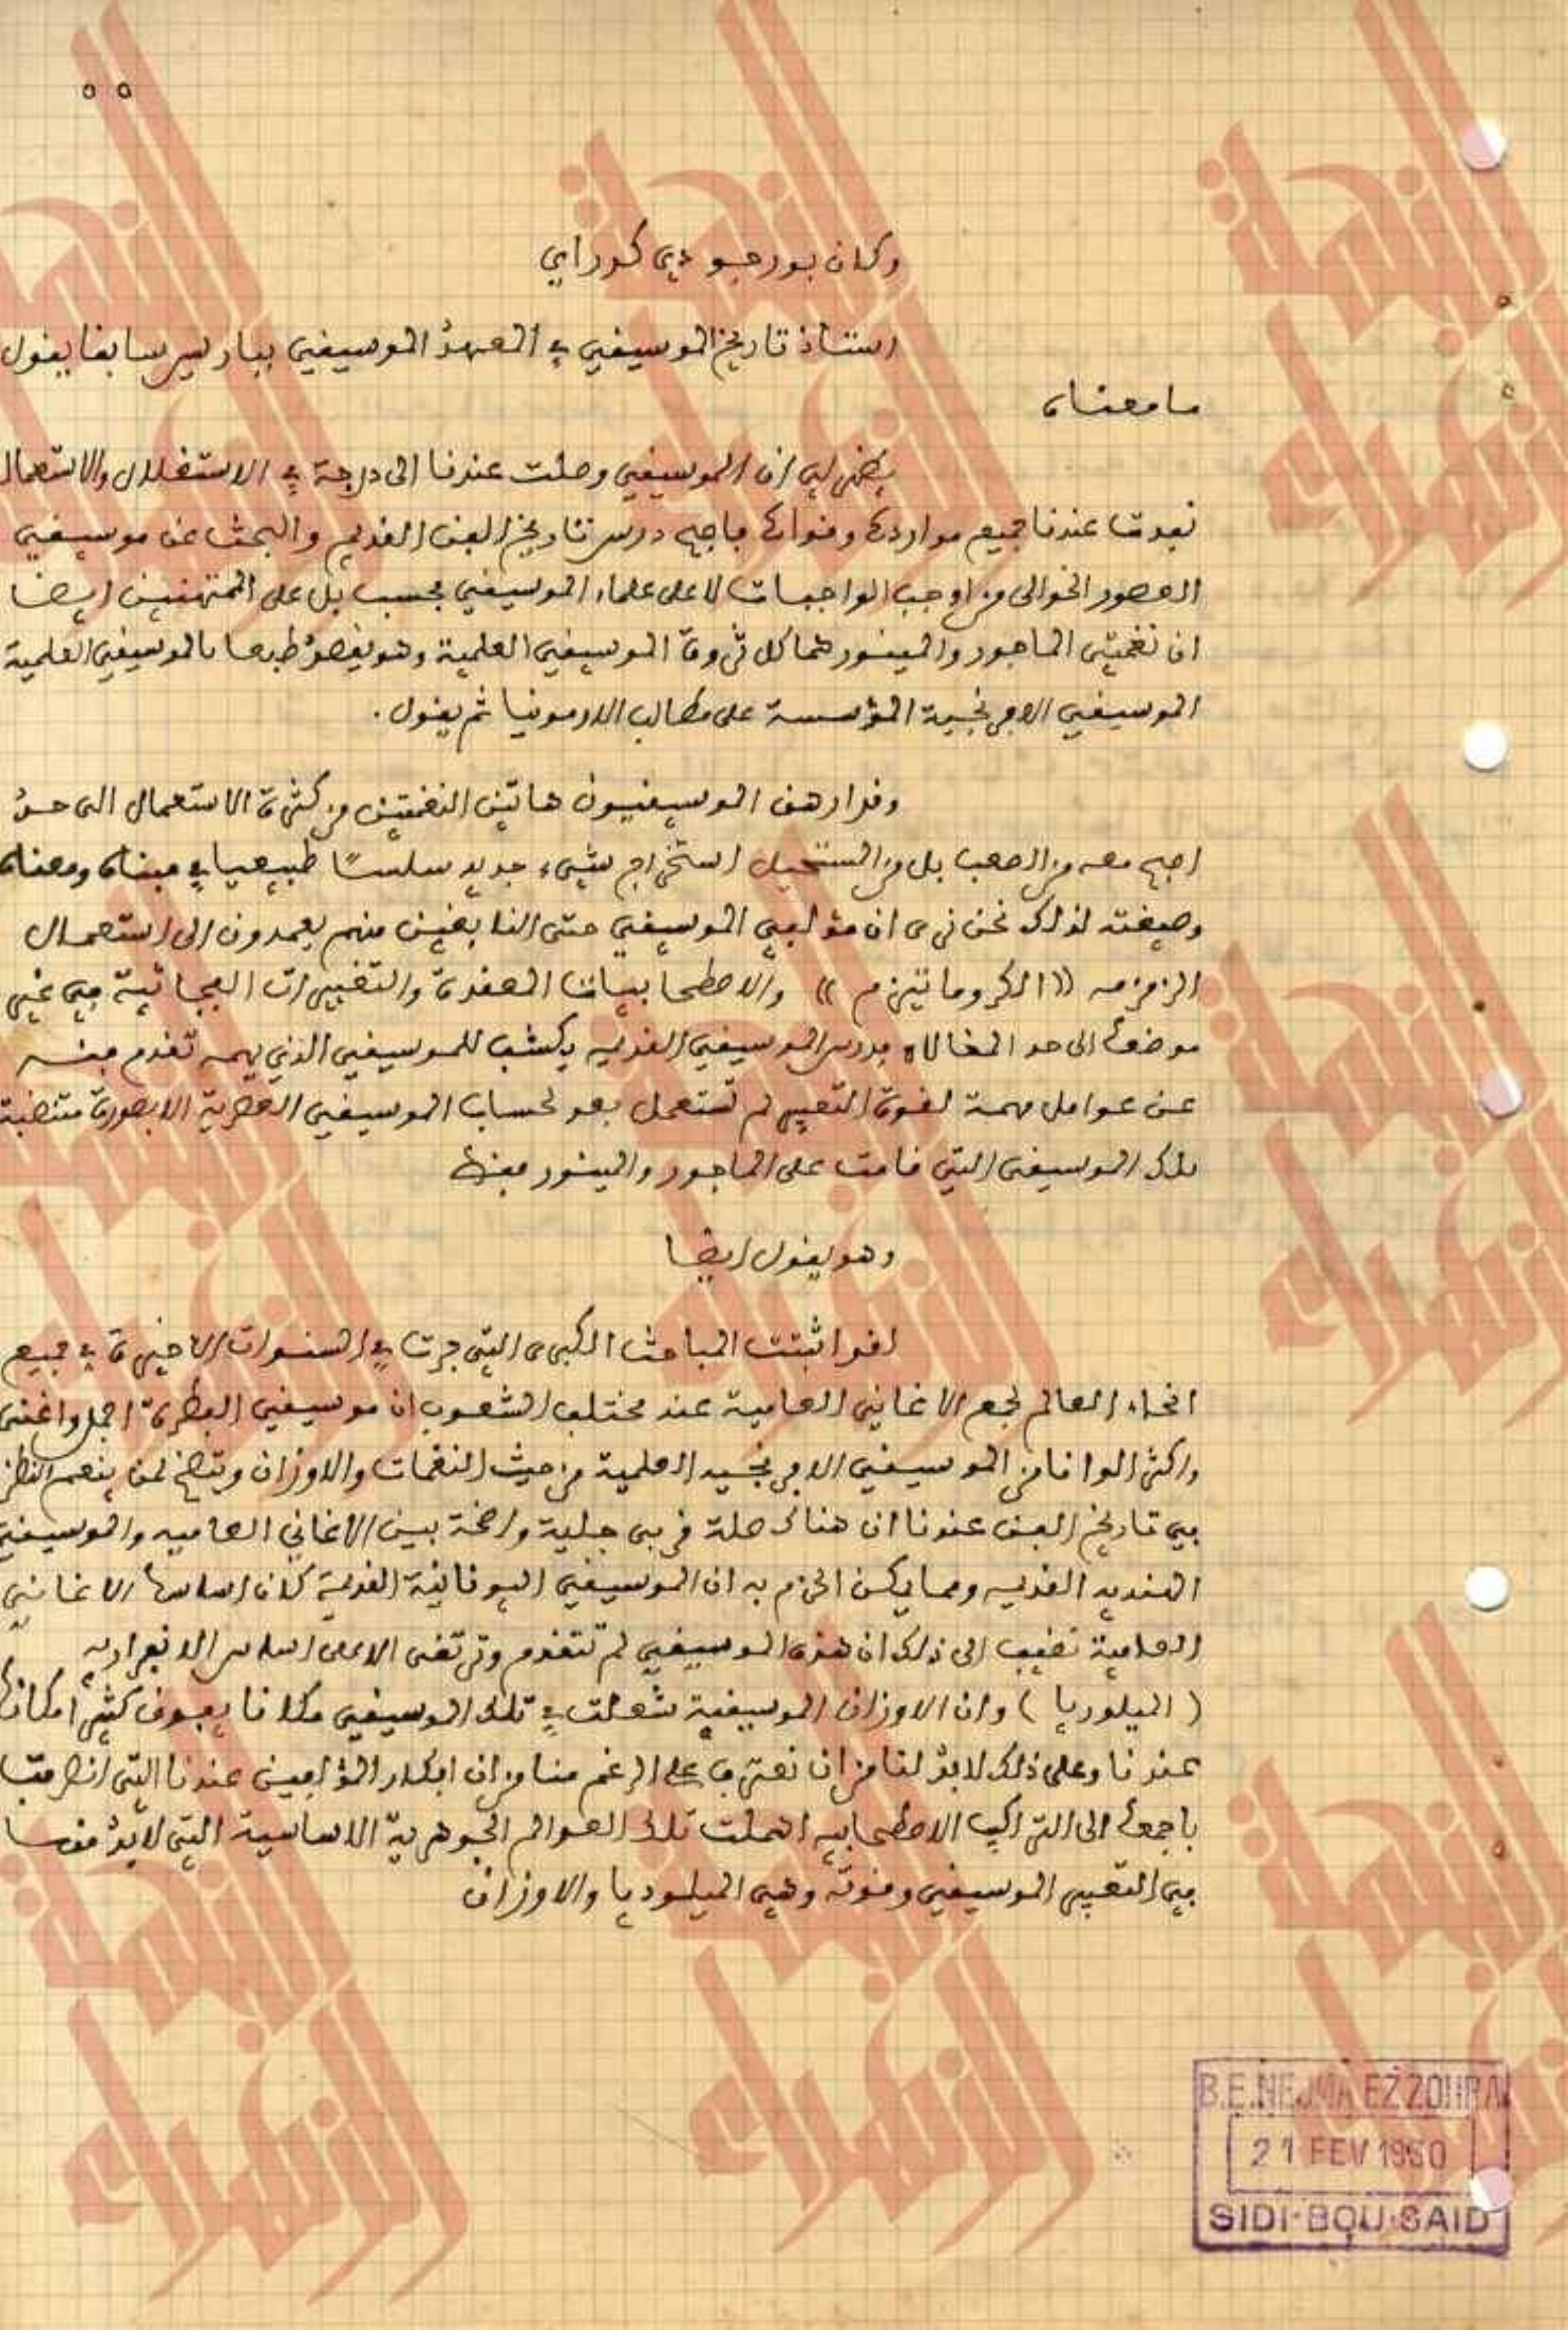 ٥ ٥
وكان بورجو دي كوراي
استاذ تاريخ الموسيقي في المعهد الموسيقي بباريس سابقا يقول
ما معناه
يظهر لي ان الموسيقي وصلت عندنا الى درجة في الاستغلال والاستعمال
نفدت عندنا جميع مواردها وقواها فاصبح درس تاريخ الفن القديم والبحث عن موسيقي
العصور الخوالى من اوجب الواجبات لا على علماء الموسيقي فحسب بل على الممتهنين ايضا
ان نغمتى الماجور والمينور هما كل ثروة الموسيقي العلمية وهو يقصد طبعا بالموسيقي العلمية
الموسيقي الافرنجية المؤسسة على مطالب الارمونيا ثم يقول .
وقد ارهف الموسيقيون هاتين النغمتين من كثرة الاستعمال الى حد
اصبح معه من الصعب بل من المستحيل استخراج شيء جديد سلسا طبيعيا في مبناه ومعناه
وصيغته لذلك نحن نرى ان مؤلفي الموسيقي حتى النابغين منهم يعمدون الى استعمال
((الكروماتيزم)) والاصطحابيات المعقدة والتغييرات الفجائية في غير
موضعها الى حد المغالاة فدرس الموسيقي القديمه يكشف للموسيقي الذي يهمه تقدم فنه
عن عوامل مهمة لقوة التعبير لم تستعمل بعد لحساب الموسيقي العصرية الا بصورة مقتضبة
تلك الموسيقى التي قامت على الماجور والمينور فقط
وهو يقول ايضا
لقد اثبتت المباحث الكبرى التي جرت في السنوات الاخيرة في جميع
انحاء العالم لجمع الاغاني العامية عند مختلف الشعوب ان موسيقي الفطرة اجمل واغنى
واكثر الوانا من الموسيقي الافرنجيه العلمية من حيث النغمات والاوزان ويتضح لمن ينعم النظر
في تاريخ الفن عندنا ان هناك صلة قربى جلية واضحة بين الاغاني العاميه والموسيقي
الهنديه القديمه ومما يمكن الجزم به ان الموسيقي اليونانية القديمة كان اساسها الاغاني
العامية نضيف الى ذلك ان هذه الموسيقي لم تتقدم وترتقى الا على اساس الانفراديه
(الميلوديا) وان الاوزان الموسيقية شغلت في تلك الموسيقي مكانا يفوق كثيرا مكانها
عندنا وعلى ذلك لا بد لنا من ان نعترف على الرغم منا من ان افكار المؤلفين عندنا التي انصرفت
باجمعها الى التراكيب الاصطحابيه اهملت تلك العوالم الجوهرية الاساسية التي لا بد منها
في التعبير الموسيقي وقوته وهي الميلوديا والاوزان
B.E.NEJMA EZZOHRA
21 FEV 1980
SIDI-BOU-SAID